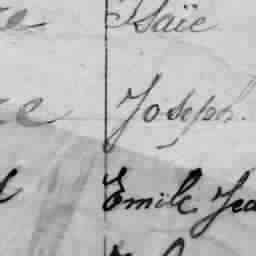 Isaïe
Joseph.
Emile Jea